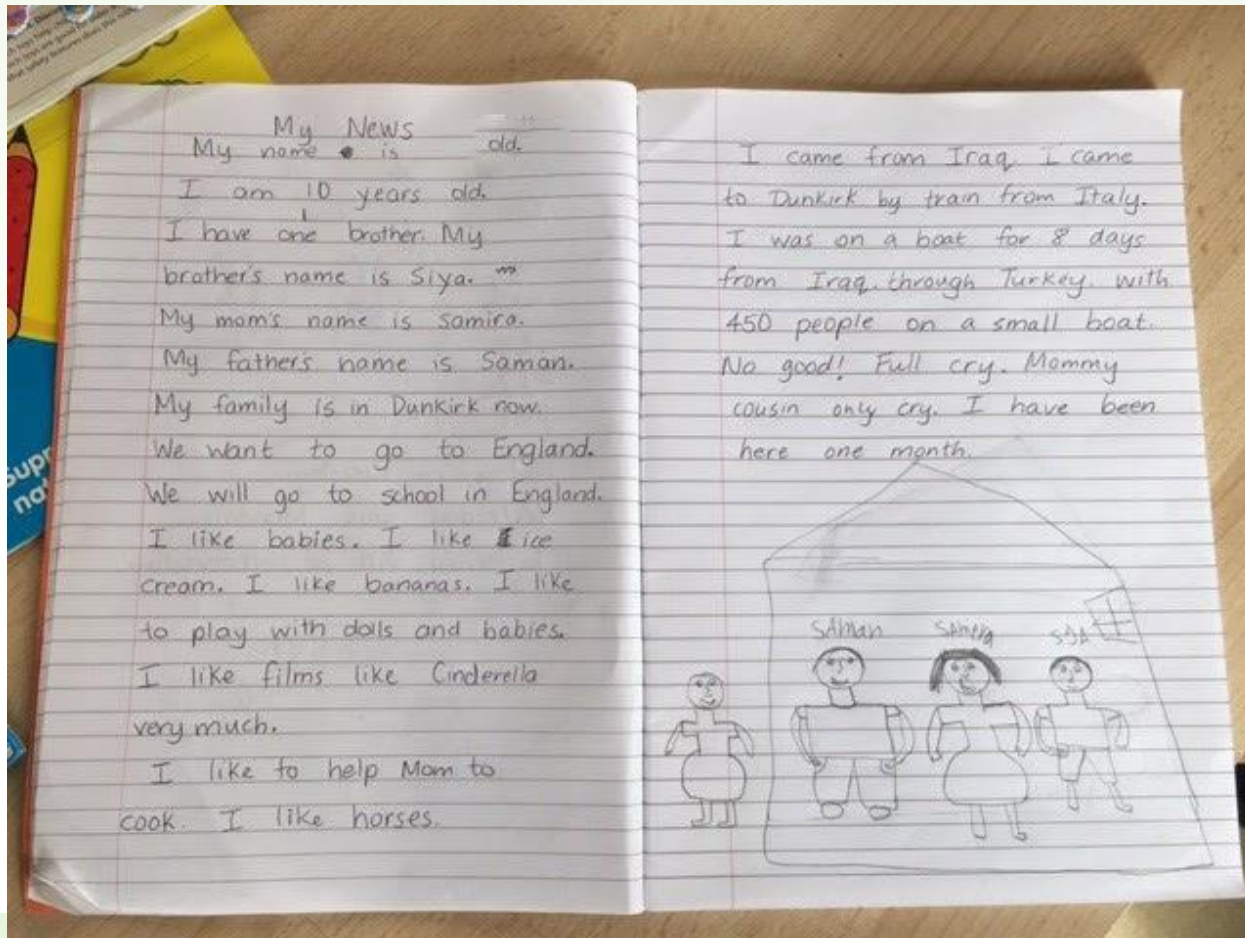 My News
My name is old.
I am 10 years old.
I have one brother. My
brother's name is Siya.
My mom's name is Samira.
My father's name is Saman.
My family is in Dunkirk now.
We want to go to England.
We will go to school in England.
I like babies. I like ice
cream. I like bananas. I like
to play with dolls and babies.
I like films like Cinderella
very much.
I like to help Mom to
cook. I like horses.
I came from Iraq. I came
to Dunkirk by train from Italy.
I was on a boat for 8 days
from Iraq through Turkey with
450 people on a small boat.
No good! Full cry. Mommy
cousin only cry. I have been
here one month.
SAman
Supp
nat